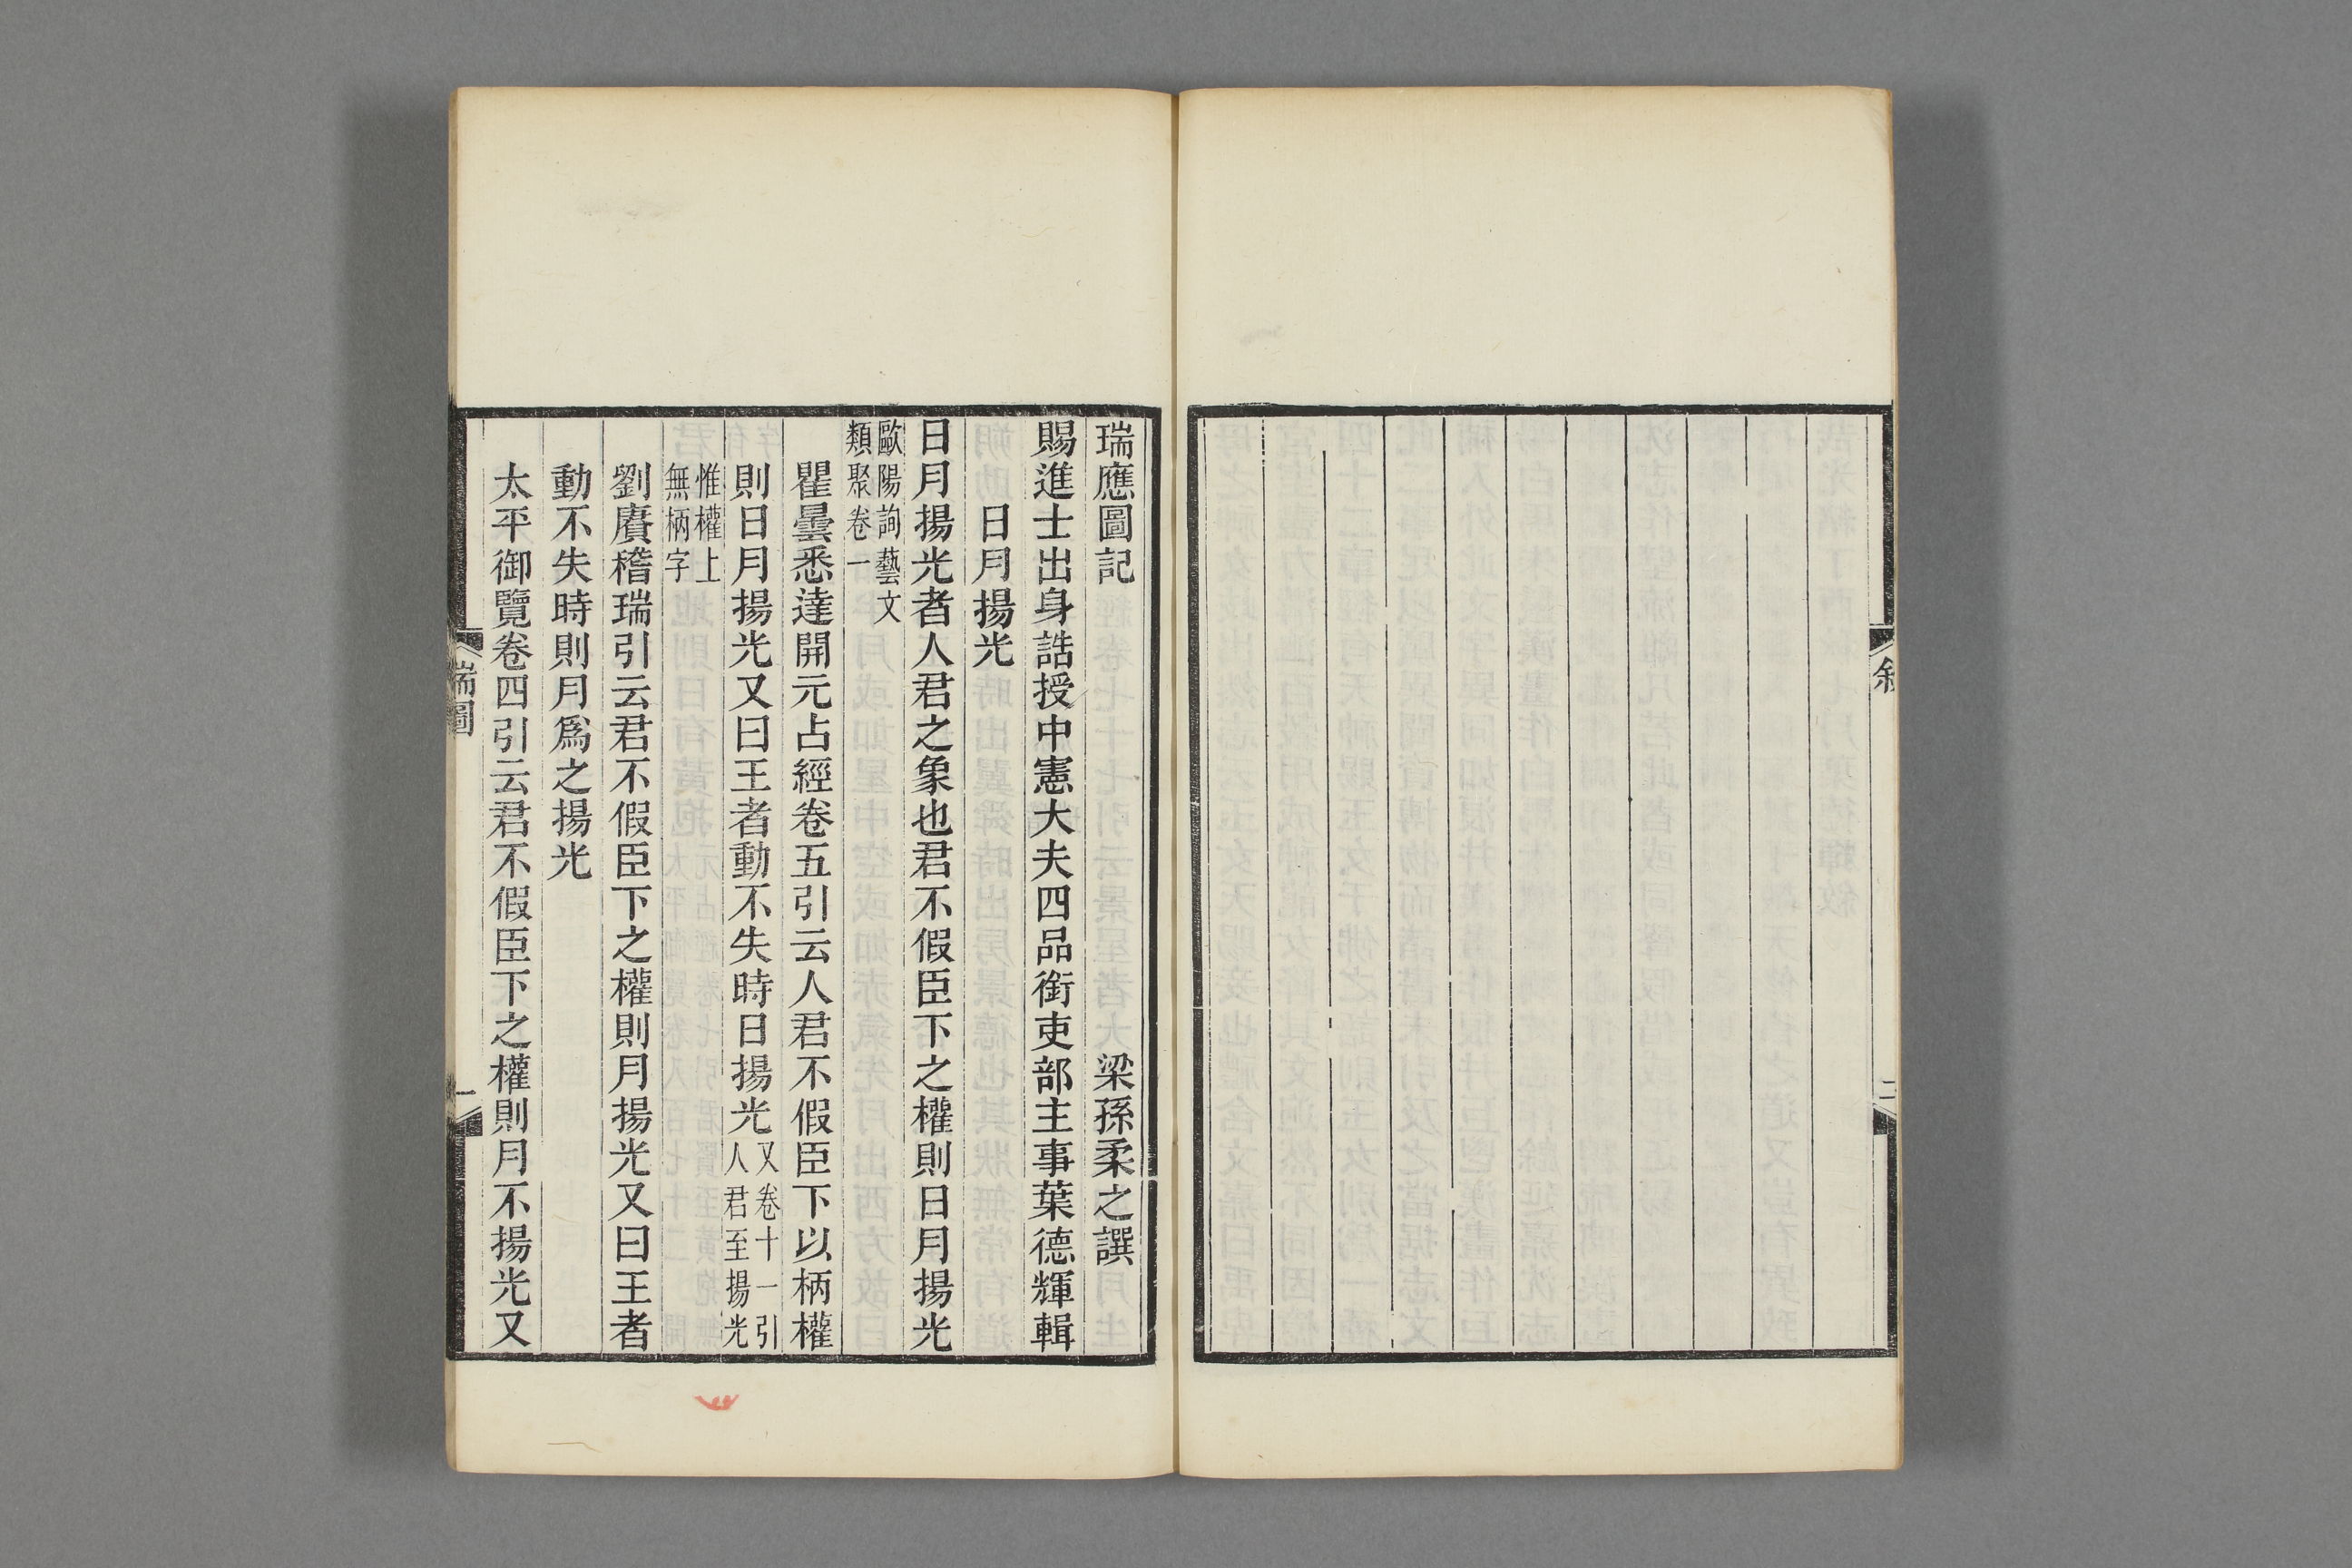 二
瑞應圖記 梁孫柔之譔
賜進士出身誥授中憲大夫四品銜吏部主事葉德輝輯
日月揚光
日月揚光者人君之象也君不假臣下之權則日月揚光
歐陽詢藝文
類聚卷一
瞿曇悉達開元占經卷五引云人君不假臣下以柄權
則日月揚光又曰王者動不失時日揚光
又卷十一引
人君至揚光
惟權上
無柄字
劉賡稽瑞引云君不假臣下之權則月揚光又曰王者
動不失時則月爲之揚光
太平御覽卷四引云君不假臣下之權則月不揚光又
瑞圖
一